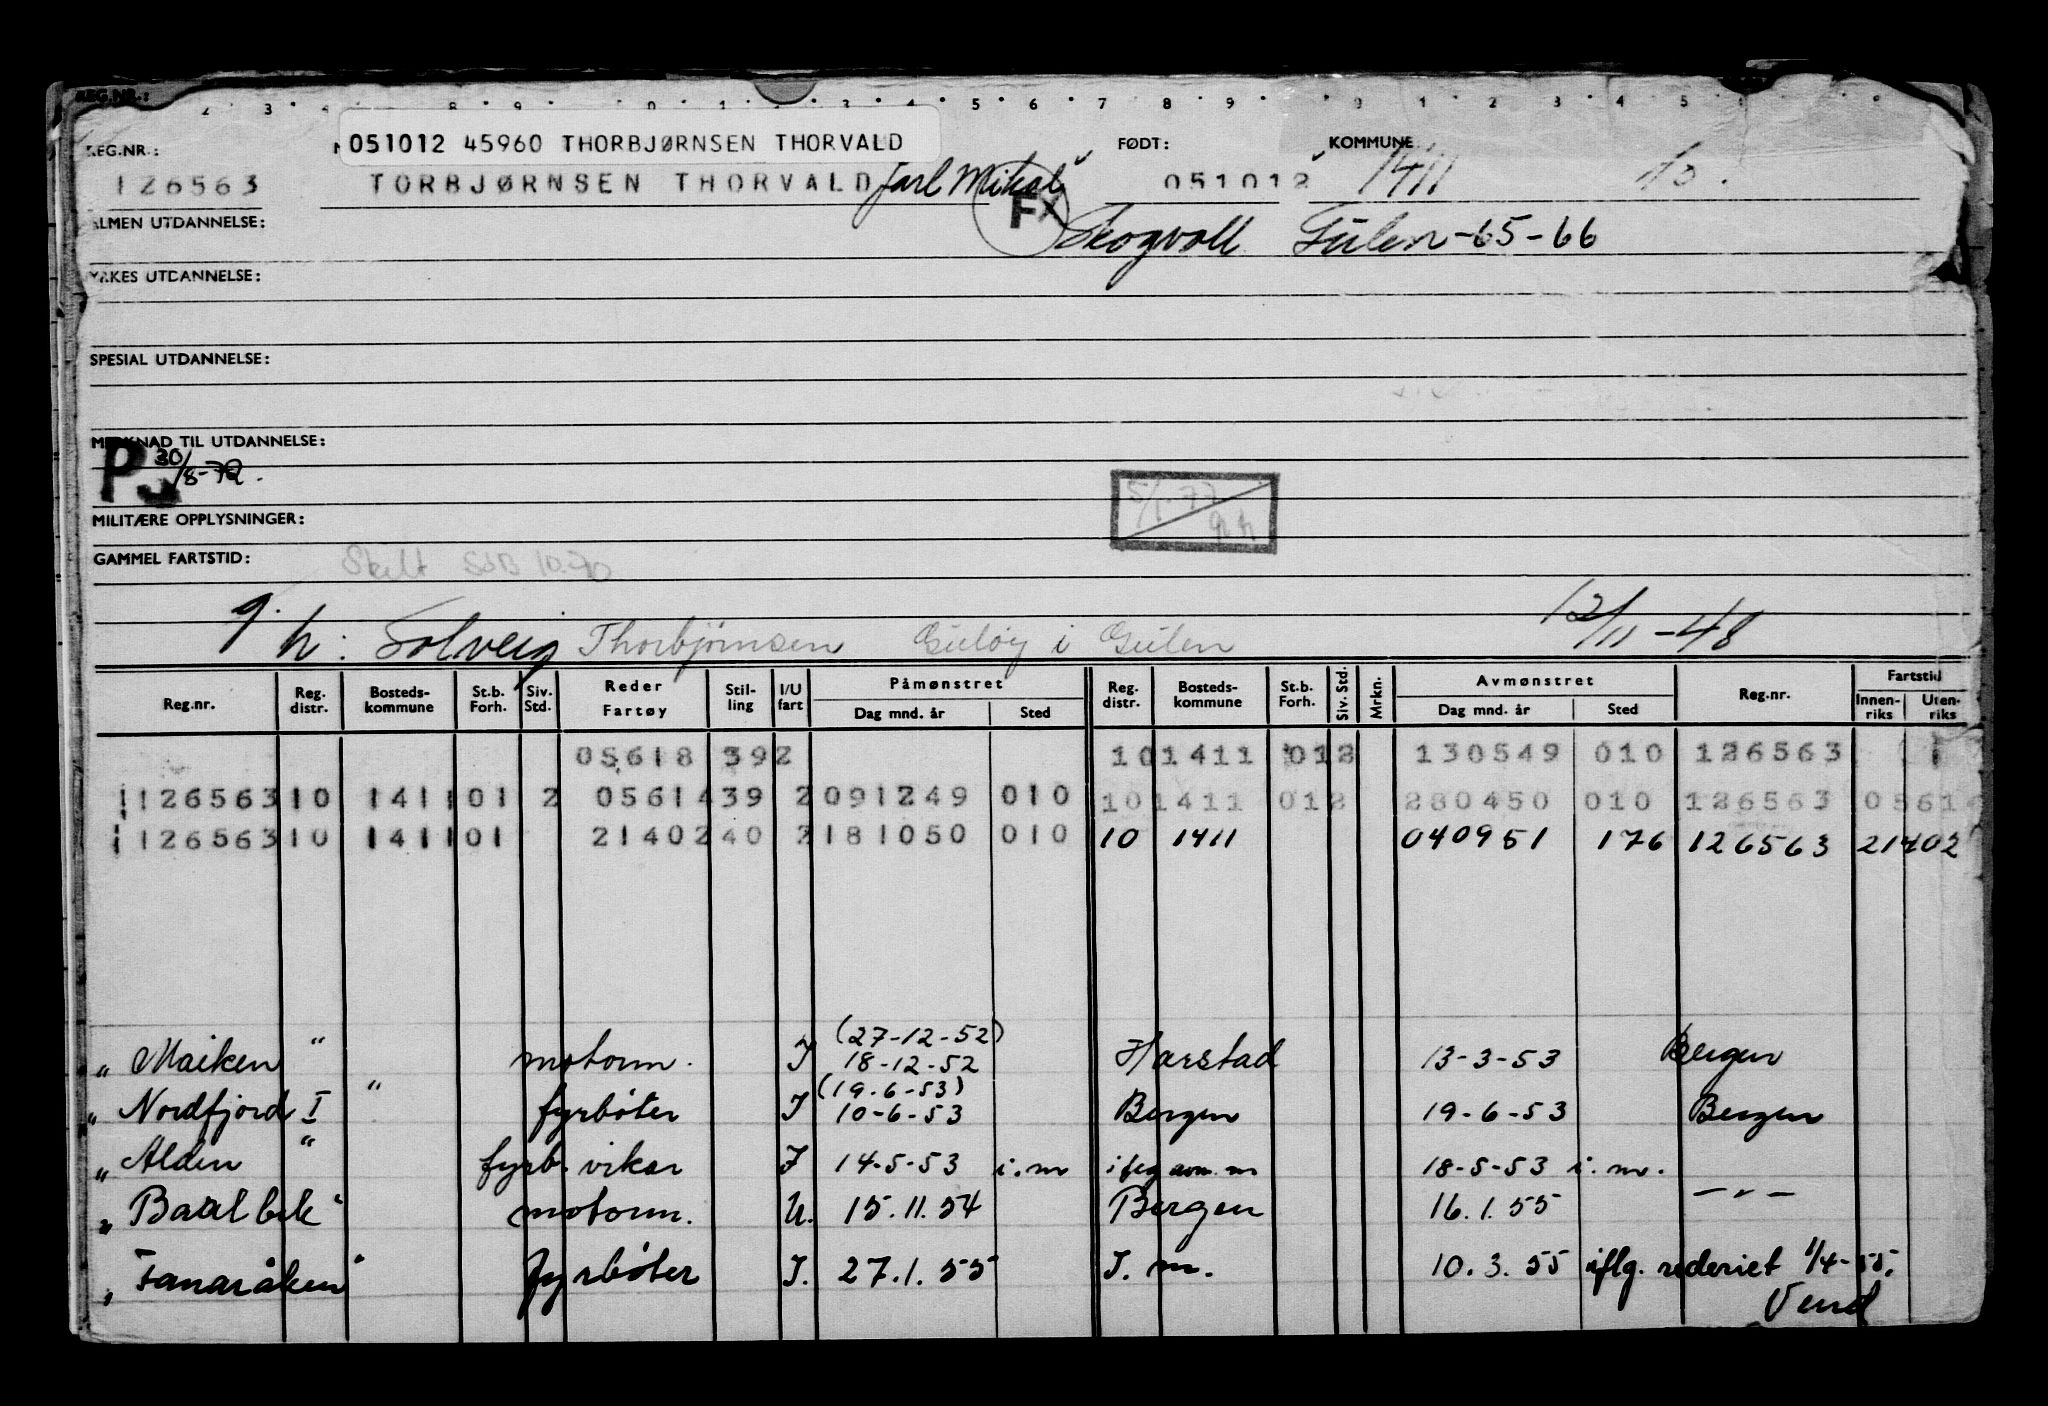 REG.NR.:
2 3 4 8 9 0 1 2 3 4 5 6 7 8 9 0 1 2 3 4 5
051012 45960 THORBJØRNSEN THORVALD
REG.NR.: FØDT: KOMMUNE
126563 TORBJØRNSEN THORVALD Jarl Mikal 051012 1411 10.
FX
ALMEN UTDANNELSE: Skogvoll Gulen -65-66
YRKES UTDANNELSE:
SPESIAL UTDANNELSE:
MERKNAD TIL UTDANNELSE:
P 30/8-72.
5/1-77
MILITÆRE OPPLYSNINGER:
GAMMEL FARTSTID: Skilt SSB 10.70
g. h: Solveig Thorbjørnsen Guløy i Gulen 12/11-48
Reg.nr. Reg. distr. Bosteds-kommune St.b. Forh. Siv. Std. Reder Fartøy Stil-ling I/U fart Påmønstret Dag mnd. år Sted Reg. distr. Bosteds-kommune St.b. Forh. Siv. Std. Mrkn. Avmønstret Dag mnd. år Sted Reg.nr. Fartstid Innen-riks Uten-riks
05618 39 2 10 1411 01 2 130549 010 126563 1
1 126563 10 1411 01 2 05614 39 2 091249 010 10 1411 01 2 280450 010 126563 05614
1 126563 10 1411 01 21402 40 2 181050 010 10 1411 040951 176 126563 21402
(27-12-52)
" Maiken " motorm. I 18-12-52 Harstad 13-3-53 Bergen
(19.6-53)
" Nordfjord I " fyrbøter I 10-6-53 Bergen 19-6-53 Bergen
" Alden " fyrb. vikar I 14-5-53 i.m iflg avm. m 18-5-53 i.m.
" Baalbek " motorm. U. 15.11.54 Bergen 16.1.55 — " —
" Fanaråken " fyrbøter I. 27.1.55 I. m. 10.3.55 iflg. rederiet 1/4-55.
Vend